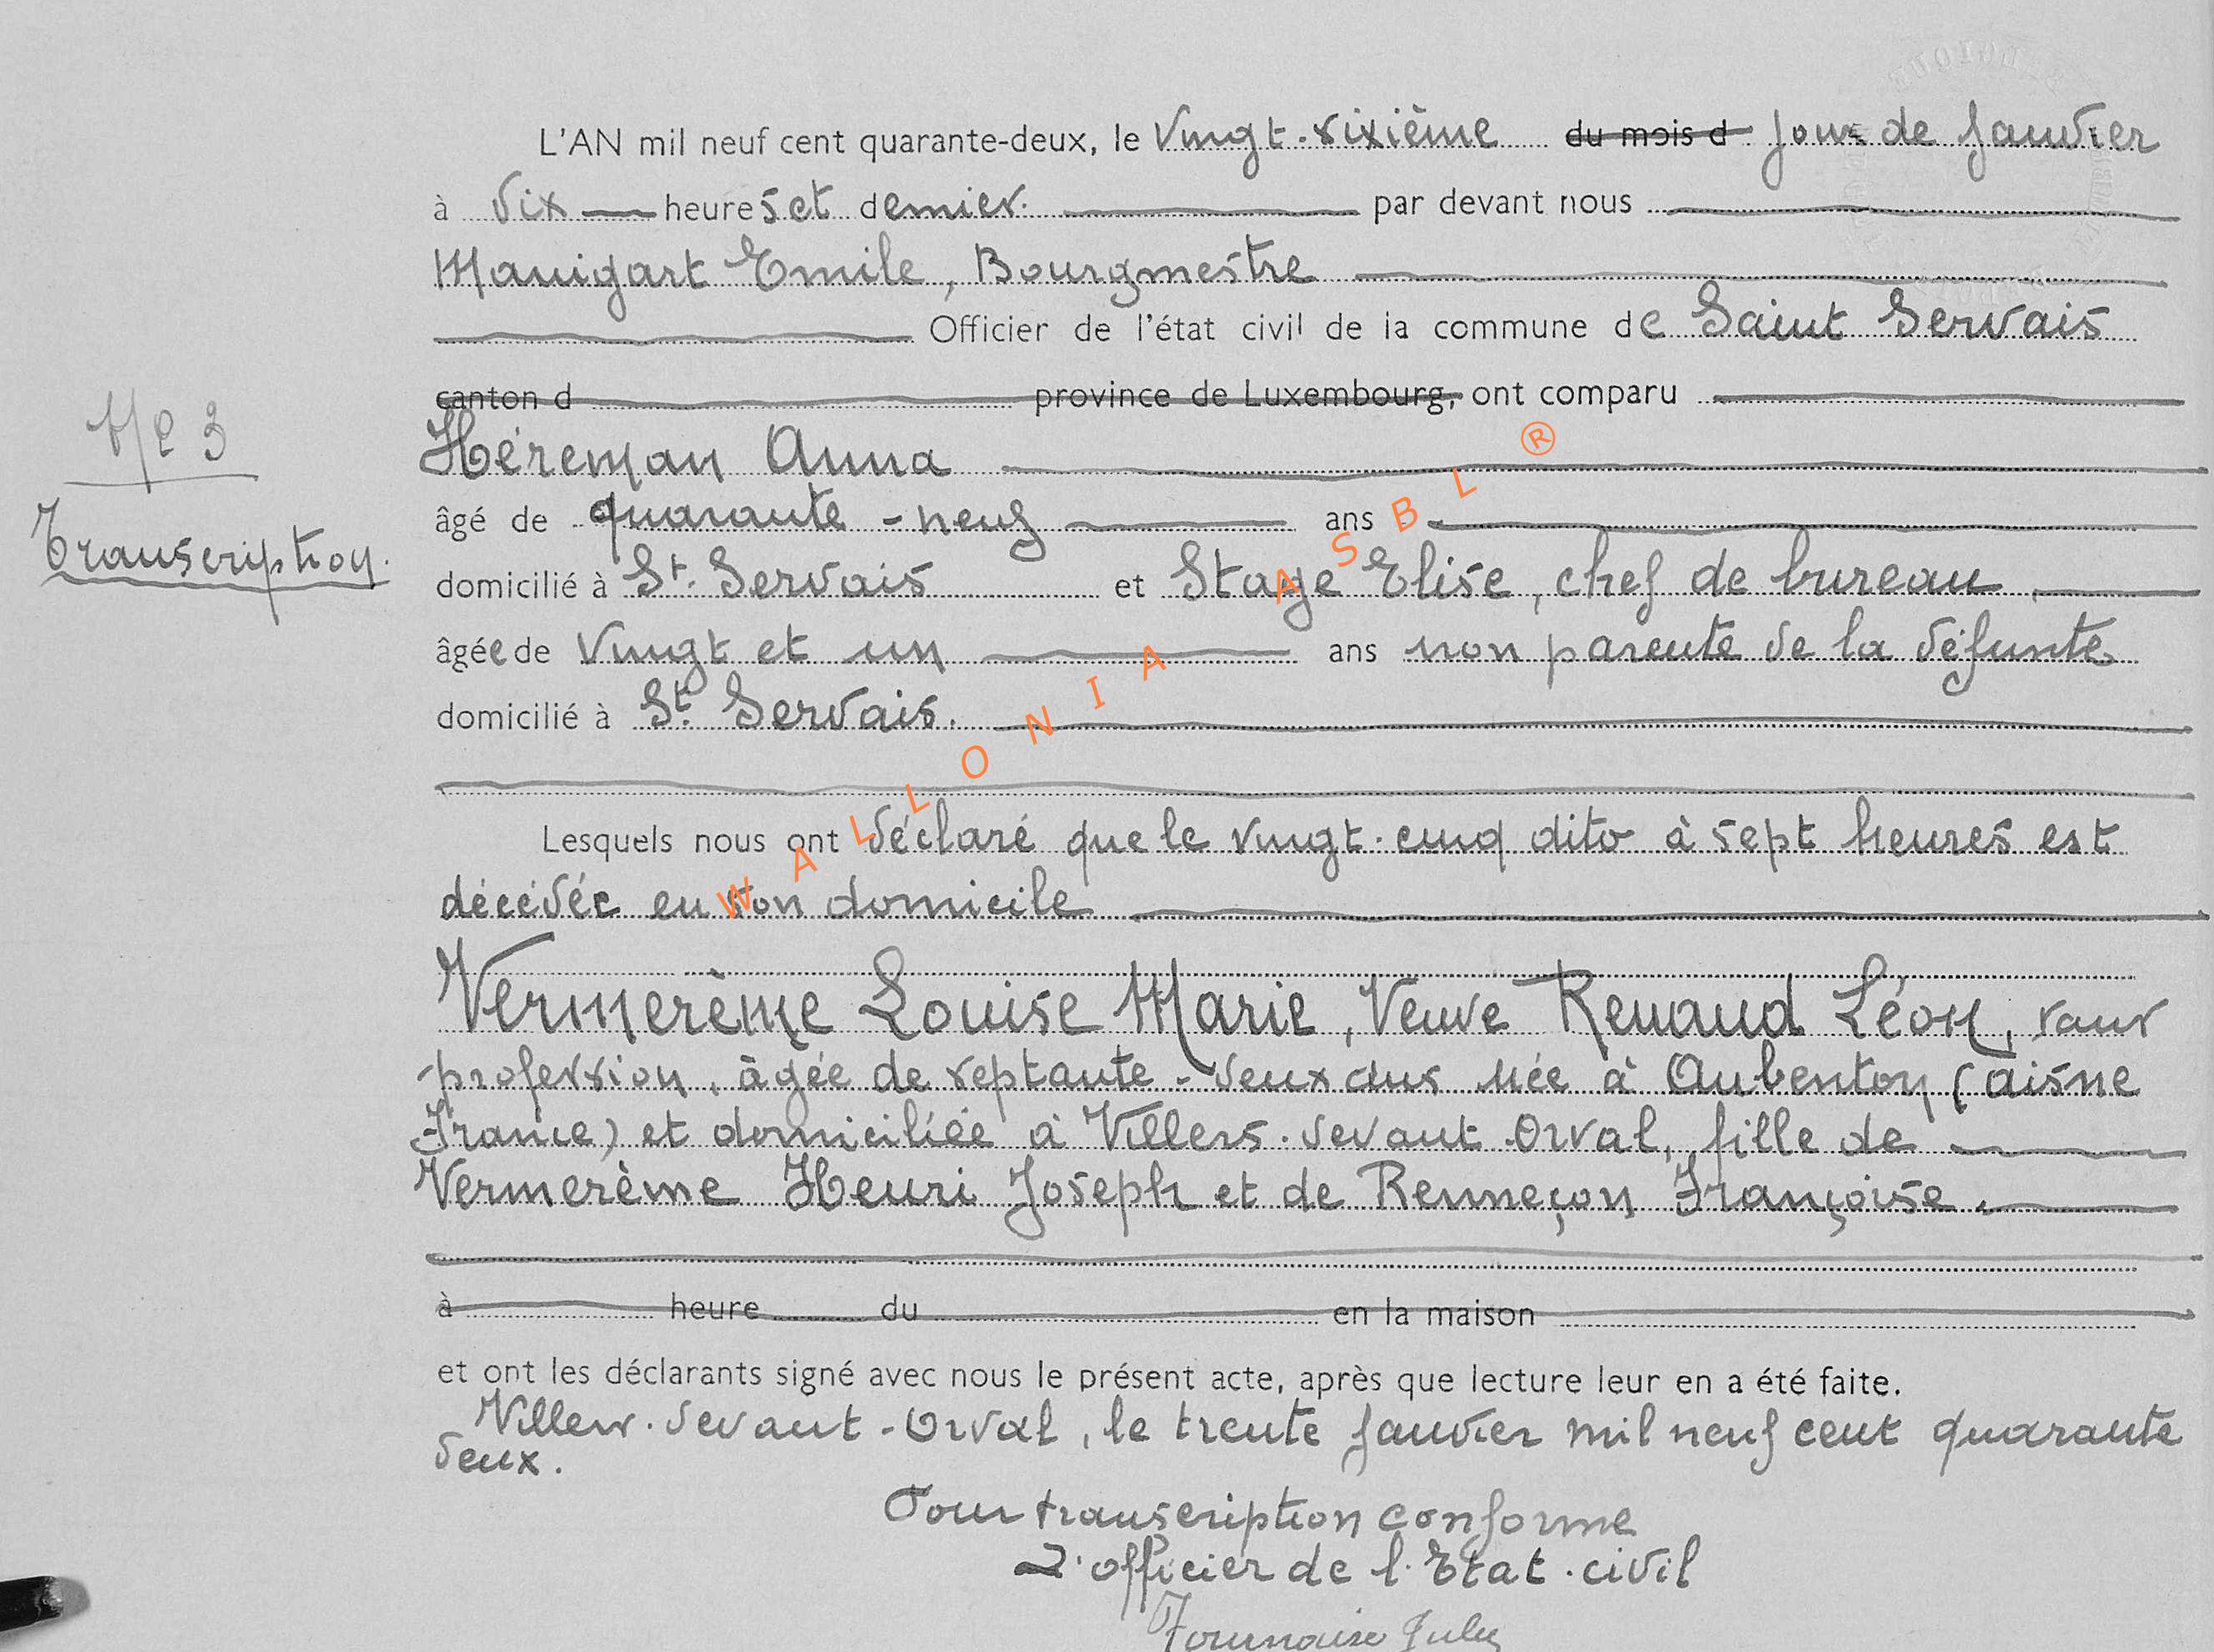 L'AN mil neuf cent quarante-deux, le vingt-sixième du mois d jour de janvier
à dix heures et demier. par devant nous
Manigart Emile, Bourgmestre
Officier de l'état civil de la commune de Saint Servais
canton d province de Luxembourg, ont comparu
N° 3
Héreman Anna
âgé de quarante-neuf ans
Transcription.
domicilié à St. Servais et Stage Elise, chef de bureau,
âgée de vingt et un ans non parente de la défunte
domicilié à St. Servais.
Lesquels nous ont déclaré que le vingt-cinq dito à sept heures est
décédée en son domicile
Vermerème Louise Marie, Veuve Renaud Léon, sans
profession, âgée de septante-deux ans née à Aubenton (aisne
France) et domiciliée à Villers-devant-Orval, fille de
Vermerème Henri Joseph et de Renneçon Françoise.
à heure du en la maison
et ont les déclarants signé avec nous le présent acte, après que lecture leur en a été faite.
Villers-devant-Orval, le trente janvier mil neuf cent quarante
deux.
Pour transcription conforme
L'officier de l'Etat-civil
WALLONIA ASBL ®